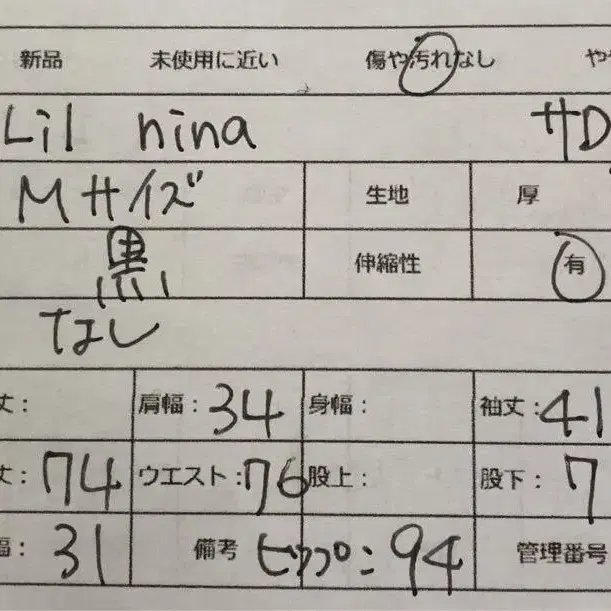 新品 未使用に近い 傷や汚れなし やや
Lil nina サロ
Mサイズ 生地 厚
黒 伸縮性 有
なし
丈: 肩幅:34 身幅: 袖丈:41
丈:74 ウエスト:76 股上: 股下:7
幅:31 備考 ヒップ:94 管理番号